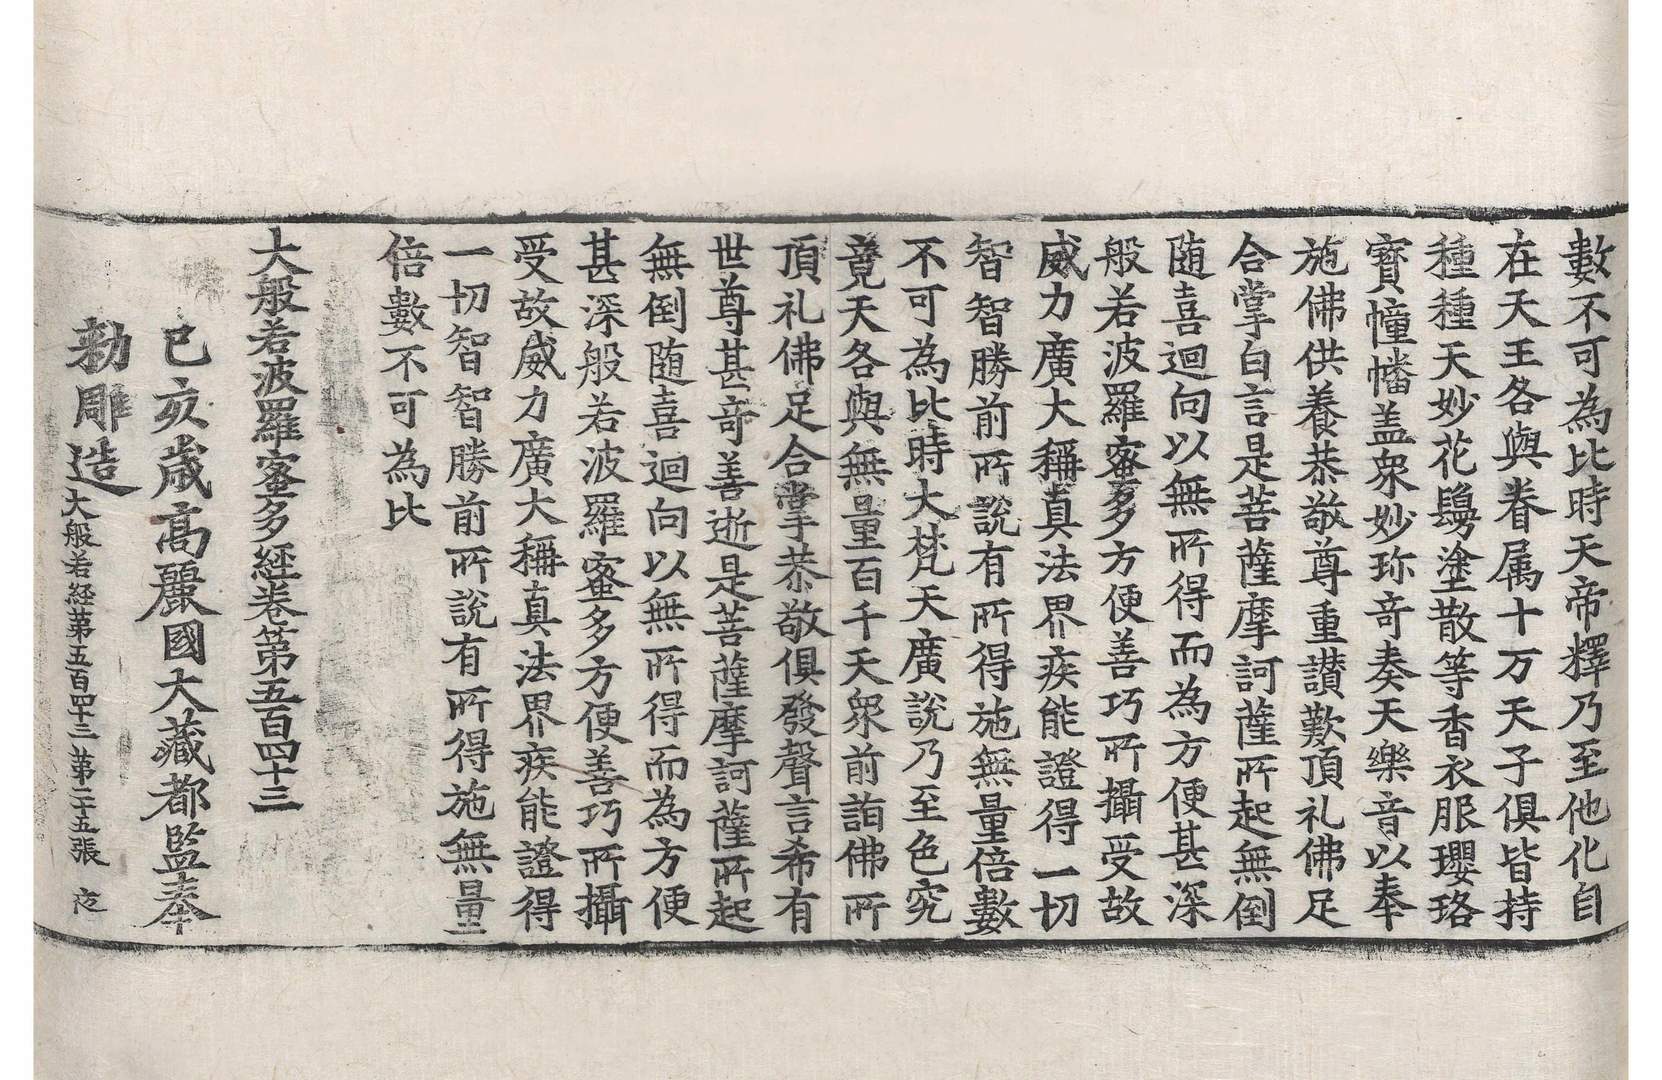 數不可為比時天帝釋乃至他化自
在天王各與眷属十万天子俱皆持
種種天妙花鬘塗散等香衣服瓔珞
寳幢幡盖衆妙珎竒奏天樂音以奉
施佛供養恭敬尊重讃歎頂礼佛足
合掌白言是菩薩摩訶薩所起無倒
随喜迴向以無所得而為方便甚深
般若波羅蜜多方便善巧所攝受故
威力廣大稱真法界疾能證得一切
智智勝前所說有所得施無量倍數
不可為比時大梵天廣說乃至色究
竟天各與無量百千天衆前詣佛所
頂礼佛足合掌恭敬俱發聲言希有
世尊甚竒善逝是菩薩摩訶薩所起
無倒随喜迴向以無所得而為方便
甚深般若波羅蜜多方便善巧所攝
受故威力廣大稱真法界疾能證得
一切智智勝前所說有所得施無量
倍數不可為比
大般若波羅蜜多經卷第五百四十三
己亥歲高麗國大藏都監奉
勑雕造
大般若経第五百四十三 第二十五張 夜